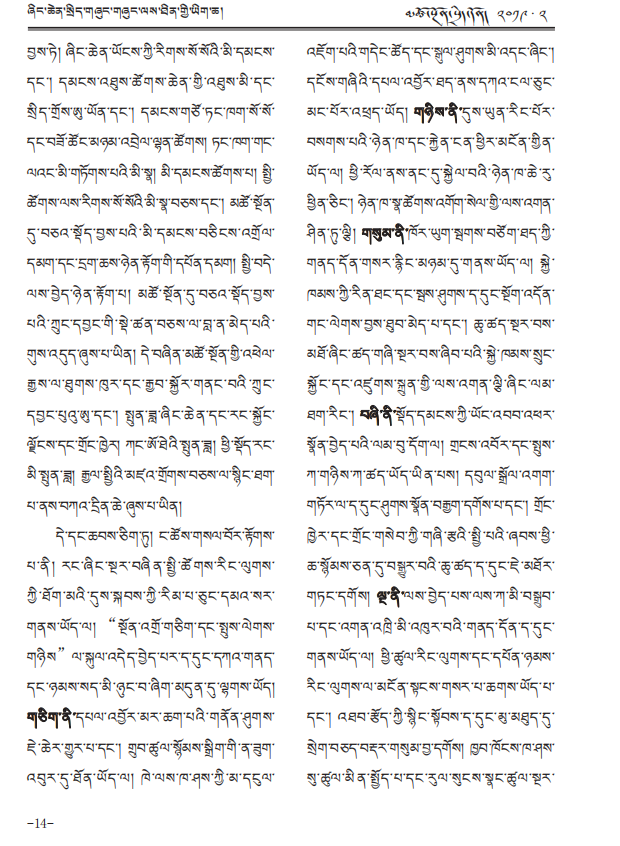 ཞིང་ཆེན་སྲིད་གཞུང་གཞུང་ལས་ཐིན་གྱི་ཡིག་ཆ།
མཚོ་སྔོན་སྲིད་གཞུང་། ༢༠༡༩ · ༢
བྱས་ཏེ། ཞིང་ཆེན་ཡོངས་ཀྱི་རིགས་སོ་སོའི་མི་དམངས་
དང་། དམངས་འཐུས་ཚོགས་ཆེན་གྱི་འཐུས་མི་དང་
སྲིད་གྲོས་ཨུ་ཡོན་དང་། དམངས་གཙོ་ཏང་ཁག་སོ་སོ་
དང་བཟོ་ཚོང་མཉམ་འབྲེལ་ལྷན་ཚོགས། ཏང་ཁག་གང་
ལའང་མི་གཏོགས་པའི་མི་སྣ། མི་དམངས་ཚོགས་པ། སྤྱི་
ཚོགས་ལས་རིགས་སོ་སོའི་མི་སྣ་བཅས་དང་། མཚོ་སྔོན་
དུ་བཅའ་སྡོད་བྱས་པའི་མི་དམངས་བཅིངས་འགྲོལ་
དམག་དང་དྲག་ཆས་ཉེན་རྟོག་གི་དཔོན་དམག སྤྱི་བདེ་
ལས་བྱེད་ཉེན་རྟོག་པ། མཚོ་སྔོན་དུ་བཅའ་སྡོད་བྱས་
པའི་ཀྲུང་དབྱང་གི་སྡེ་ཚན་བཅས་ལ་བླ་ན་མེད་པའི་
གུས་འདུད་ཞུས་པ་ཡིན། དེ་བཞིན་མཚོ་སྔོན་གྱི་འཕེལ་
རྒྱས་ལ་ཐུགས་ཁུར་དང་རྒྱབ་སྐྱོར་གནང་བའི་ཀྲུང་
དབྱང་པུའུ་ཨུ་དང་། སྤུན་ཟླ་ཞིང་ཆེན་དང་རང་སྐྱོང་
ལྗོངས་དང་གྲོང་ཁྱེར། ཀང་ཨོ་ཐེའི་སྤུན་ཟླ། ཕྱི་སྡོད་རང་
མི་སྤུན་ཟླ། རྒྱལ་སྤྱིའི་མཛའ་གྲོགས་བཅས་ལ་སྙིང་ཐག་
པ་ནས་བཀའ་དྲིན་ཆེ་ཞུས་པ་ཡིན།
དེ་དང་ཆབས་ཅིག་ཏུ། ང་ཚོས་གསལ་པོར་རྟོགས་
པ་ནི། རང་ཞིང་སྔར་བཞིན་སྤྱི་ཚོགས་རིང་ལུགས་
ཀྱི་ཐོག་མའི་དུས་སྐབས་ཀྱི་རིམ་པ་ཅུང་དམའ་སར་
གནས་ཡོད་ལ། “སྔོན་འགྲོ་གཅིག་དང་སྤུས་ལེགས་
གཉིས”ལ་སྐུལ་འདེད་བྱེད་པར་ད་དུང་དཀའ་གནད་
དང་ཉམས་སད་མི་ཉུང་བ་ཞིག་མདུན་དུ་ལྷགས་ཡོད།
གཅིག་ནི་དཔལ་འབྱོར་མར་ཆག་པའི་གནོན་ཤུགས་
ཇེ་ཆེར་གྱུར་པ་དང་། གྲུབ་ཚུལ་སྙོམས་སྒྲིག་གི་ན་ཟུག་
འབུར་དུ་ཐོན་ཡོད་ལ། ཁེ་ལས་ཁ་ཤས་ཀྱི་མ་དངུལ་
འཇོག་པའི་གདེང་ཚོད་དང་སྒུལ་ཤུགས་མི་འདང་ཞིང་།
དངོས་གཞིའི་དཔལ་འབྱོར་ཐད་ནས་དཀའ་ངལ་ཅུང་
མང་པོར་འཕྲད་ཡོད། གཉིས་ནི་དུས་ཡུན་རིང་པོར་
བསགས་པའི་ཉེན་ཁ་དང་རྐྱེན་ངན་ཕྱིར་མངོན་གྱིན་
ཡོད་ལ། ཕྱི་རོལ་ནས་ནང་དུ་སྐྱེལ་བའི་ཉེན་ཁ་ཆེ་རུ་
ཕྱིན་ཅིང་། ཉེན་ཁ་སྣ་ཚོགས་འགོག་སེལ་གྱི་ལས་འགན་
ཤིན་ཏུ་ལྕི། གསུམ་ནི་ཁོར་ཡུག་སྦགས་བཙོག་ཐད་ཀྱི་
གནད་དོན་གསར་རྙིང་མཉམ་དུ་གནས་ཡོད་ལ། སྐྱེ་
ཁམས་ཀྱི་རིན་ཐང་དང་སྦས་ཤུགས་ད་དུང་སྔོག་འདོན་
གང་ལེགས་བྱས་ཐུབ་མེད་པ་དང་། ཆུ་ཚད་སྔར་བས་
མཐོ་ཞིང་ཚད་གཞི་སྔར་བས་ཞིབ་པའི་སྐྱེ་ཁམས་སྲུང་
སྐྱོང་དང་འཛུགས་སྐྲུན་གྱི་ལས་འགན་ལྕི་ཞིང་ལམ་
ཐག་རིང་། བཞི་ནི་སྡོད་དམངས་ཀྱི་ཡོང་འབབ་འཕར་
སྣོན་བྱེད་པའི་ལམ་བུ་དོག་ལ། གྲངས་འབོར་དང་སྤུས་
ཀ་གཉིས་ཀ་ཚད་ཡོད་ཡིན་པས། དབུལ་སྒྲོལ་འགག་
གཏོར་ལ་ད་དུང་ཤུགས་སྣོན་བརྒྱག་དགོས་པ་དང་། གྲོང་
ཁྱེར་དང་གྲོང་གསེབ་ཀྱི་གཞི་རྩའི་སྤྱི་པའི་ཞབས་ཕྱི་
ཆ་སྙོམས་ཅན་དུ་བསྒྱུར་བའི་ཆུ་ཚད་ད་དུང་ཇེ་མཐོར་
གཏང་དགོས། ལྔ་ནི་ལས་བྱེད་པས་ལས་ཀ་མི་བསྒྲུབ་
པ་དང་འགན་འཁྲི་མི་འཁུར་བའི་གནད་དོན་ད་དུང་
གནས་ཡོད་ལ། ཕྱི་ཚུལ་རིང་ལུགས་དང་དཔོན་ཉམས་
རིང་ལུགས་ལ་མངོན་སྟངས་གསར་པ་ཆགས་ཡོད་པ་
དང་། འཐབ་རྩོད་ཀྱི་སྙིང་སྟོབས་ད་དུང་མུ་མཐུད་དུ་
སྲེག་བཅད་བརྡར་གསུམ་བྱ་དགོས། ཁྱབ་ཁོངས་ཁ་ཤས་
སུ་ཚུལ་མིན་སྤྱོད་པ་དང་རུལ་སུངས་སྣང་ཚུལ་སྔར་
–14–